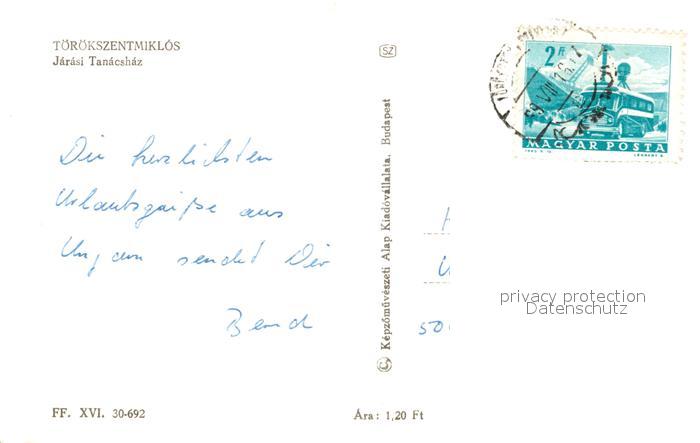 TÖRÖKSZENTMIKLÓS
Járási Tanácsház
SZ
2 Ft
MAGYAR POSTA
Die herzlichsten
Urlaubsgrüße aus
Ungarn sendet Dir
Bernd
© Képzőművészeti Alap Kiadóvállalata, Budapest
privacy protection
Datenschutz
50
FF. XVI. 30-692
Ára: 1,20 Ft